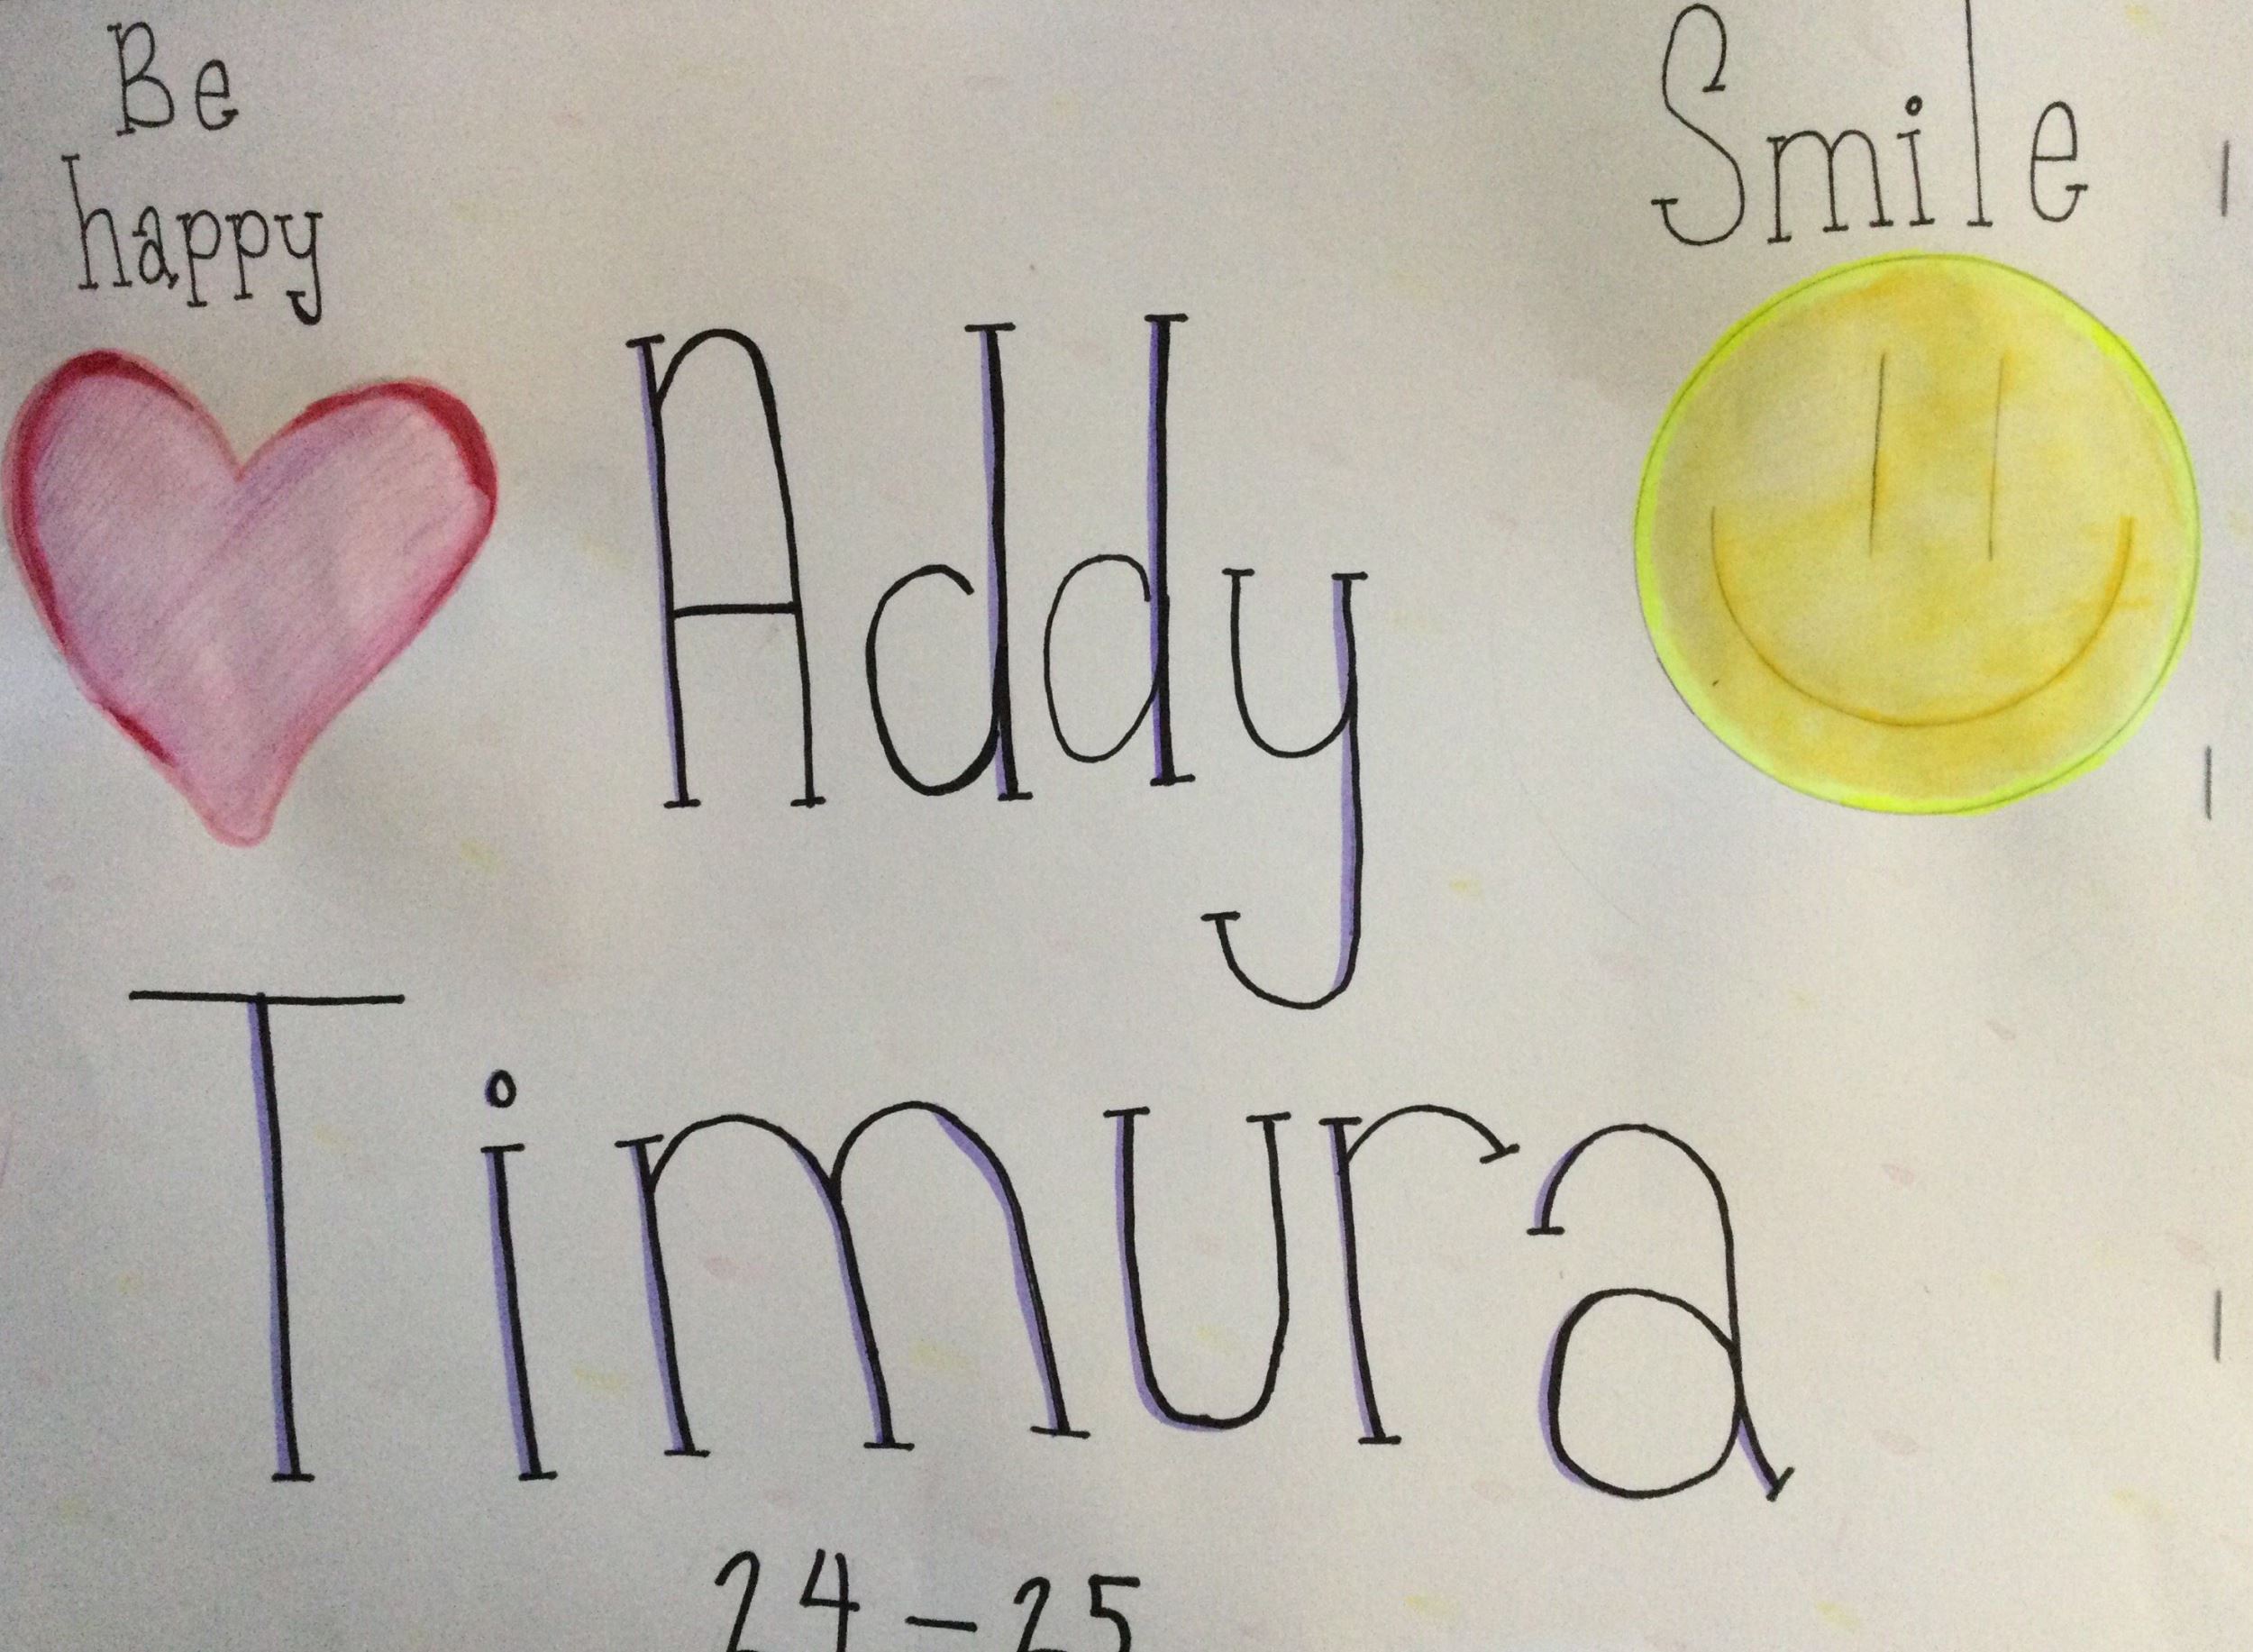 Be
happy
Smile
Addy
Timura
24-25